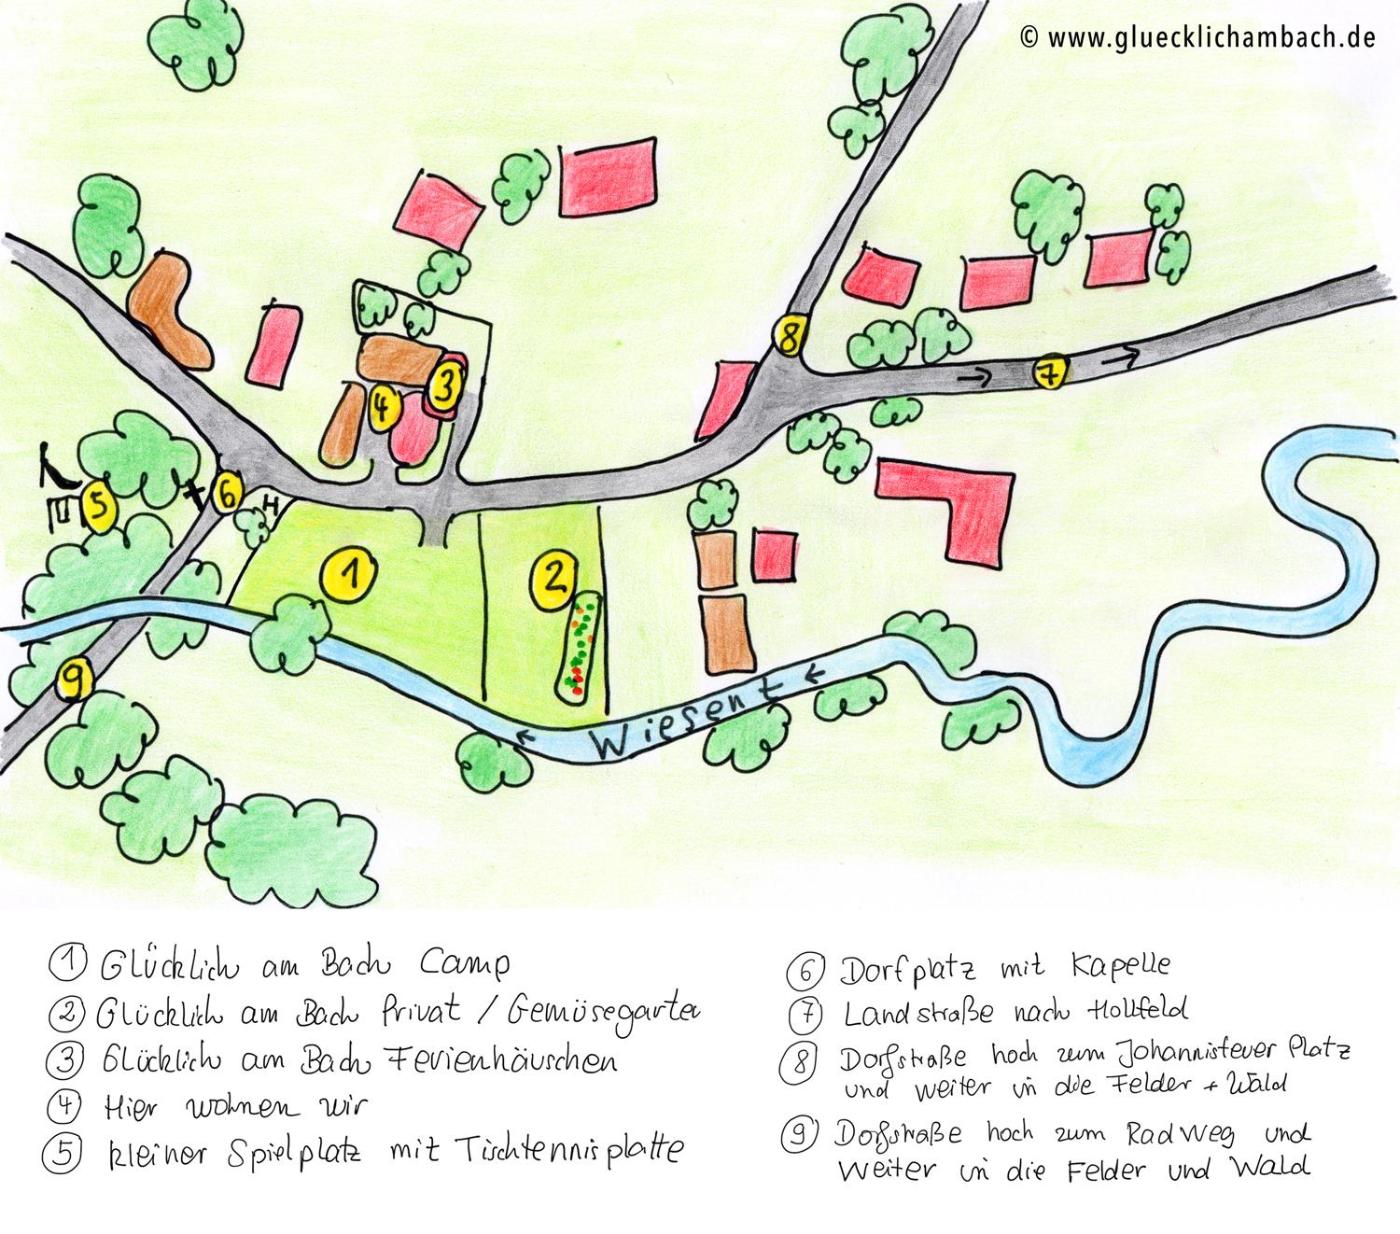 © www.gluecklichambach.de
8
3
7
4
6
H
5
1
2
9
Wiesent
1 Glücklich am Bach Camp
2 Glücklich am Bach Privat / Gemüsegarten
3 Glücklich am Bach Ferienhäuschen
4 Hier wohnen wir
5 kleiner Spielplatz mit Tischtennisplatte
6 Dorfplatz mit Kapelle
7 Landstraße nach Hollfeld
8 Dorfstraße hoch zum Johannisfeuer Platz
und weiter in die Felder + Wald
9 Dorfstraße hoch zum Radweg und
weiter in die Felder und Wald